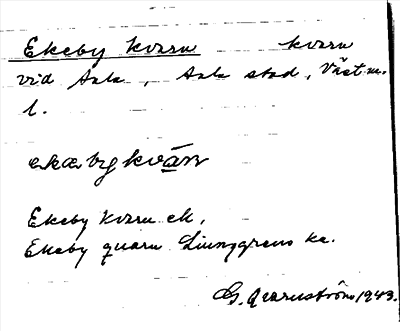 Ekeby kvarn kvarn
vid Sala, Sala stad, Västm.
l.
ekæbykvān
Ekeby kvarn ek,
Ekeby quarn Liunggrens ka.
G. Qvarnström 1943.